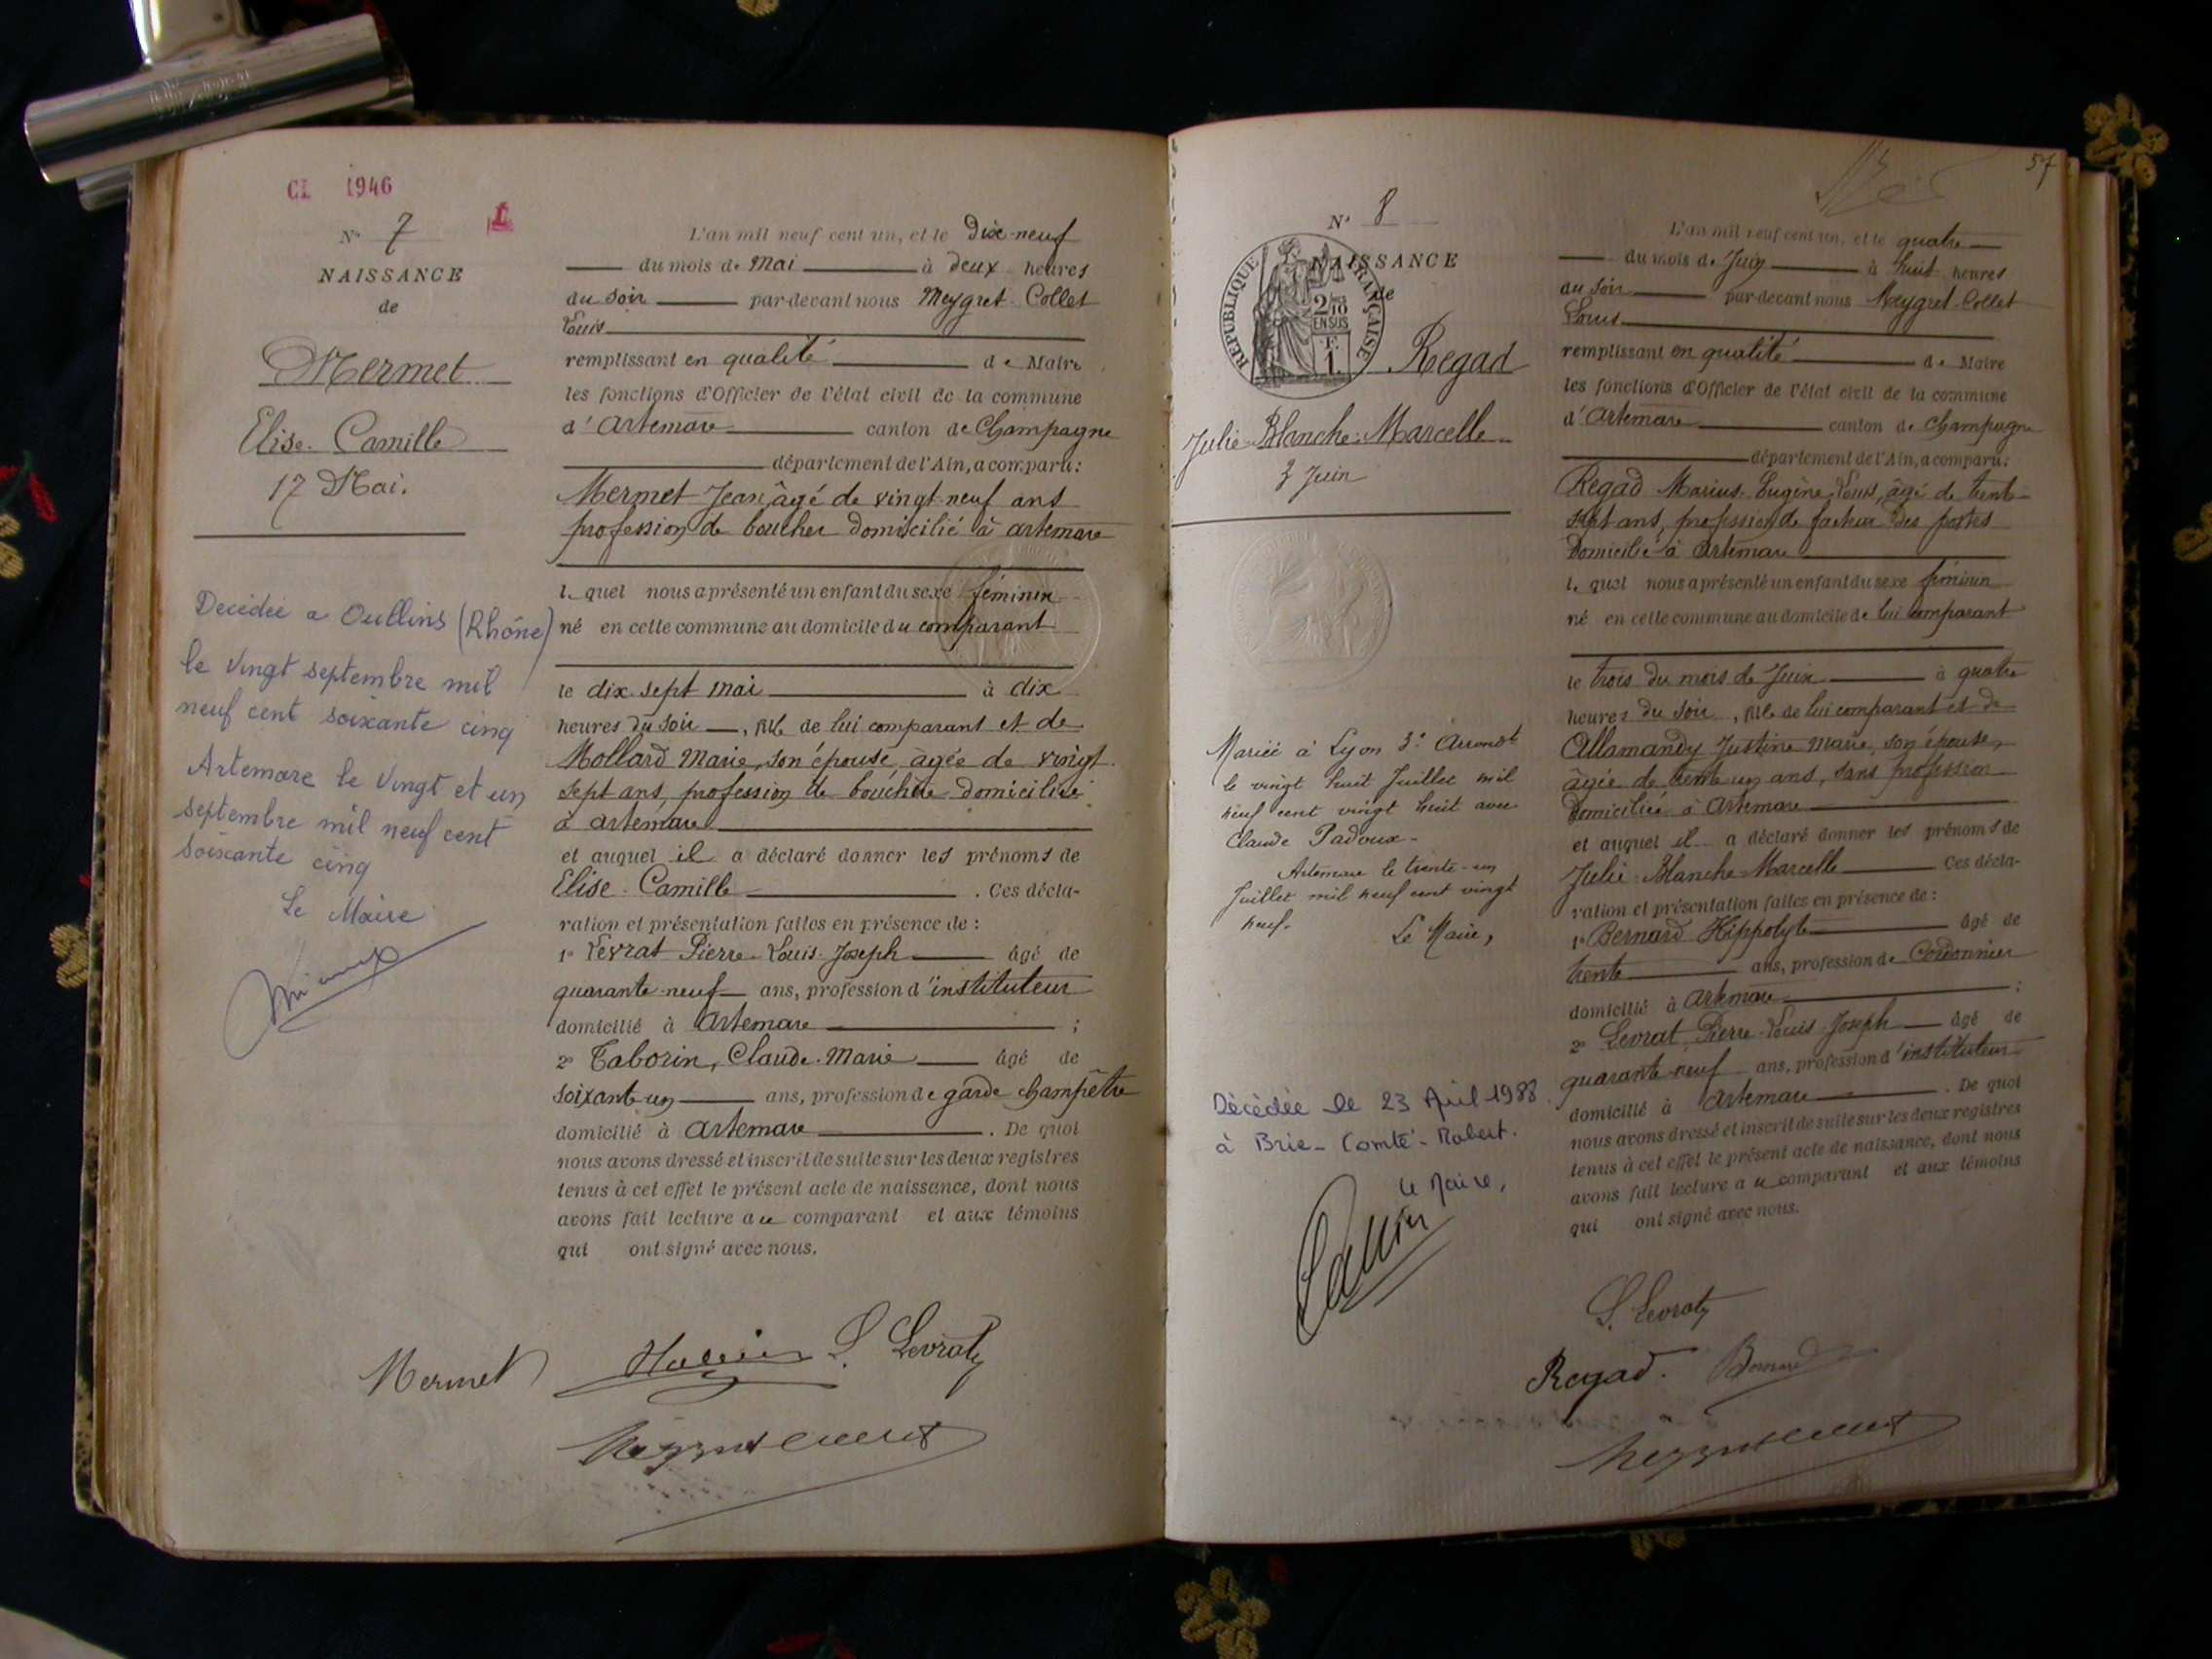 CI 1946
N° 7
NAISSANCE
de
Mermet
Elise-Camille
17 Mai.
Décédée a Oullins (Rhône)
le Vingt septembre mil
neuf cent soixante cinq
Artemare le Vingt et un
septembre mil neuf cent
soixante cinq
Le Maire
L'an mil neuf cent un, et le Dix-neuf
du mois de Mai à deux heures
du soir par-devant nous Meygret-Collet
Louis
remplissant en qualité de Maire
les fonctions d'Officier de l'état civil de la commune
d'Artemare canton de Champagne
département de l'Ain, a comparu:
Mermet Jean, âgé de vingt-neuf ans
profession de boucher domicilié à artemare
lequel nous a présenté un enfant du sexe féminin
né en cette commune au domicile du comparant
le dix-sept mai à dix
heures du soir, fille de lui comparant et de
Mollard Marie, son épouse, âgée de vingt
sept ans, profession de bouchère domiciliée
à artemare
et auquel il a déclaré donner les prénoms de
Elise-Camille. Ces décla-
ration et présentation faites en présence de :
1° Levrat Pierre-Louis-Joseph âgé de
quarante-neuf ans, profession d'instituteur
domicilié à Artemare ;
2° Taborin, Claude-Marie âgé de
soixante-un ans, profession de garde champêtre
domicilié à Artemare. De quoi
nous avons dressé et inscrit de suite sur les deux registres
tenus à cet effet le présent acte de naissance, dont nous
avons fait lecture au comparant et aux témoins
qui ont signé avec nous.
Mermet L. Levrat
57
N° 8
NAISSANCE
de
REPUBLIQUE FRANÇAISE
2/10
EN SUS
F.
1.
Regad
Julie-Blanche-Marcelle
3 Juin
Mariée à Lyon 3e Arrondt
le vingt huit Juillet mil
neuf cent vingt huit avec
Claude Padoux-
Artemare le trente-un
Juillet mil neuf cent vingt
neuf.
Le Maire,
Décédée le 23 Avril 1988
à Brie-Comte-Robert.
Le Maire,
L'an mil neuf cent un, et le quatre
du mois de Juin à huit heures
du soir par-devant nous Meygret-Collet
Louis
remplissant en qualité de Maire
les fonctions d'Officier de l'état civil de la commune
d'Artemare canton de Champagne
département de l'Ain, a comparu:
Regad Marius-Eugène-Louis, âgé de trente-
sept ans, profession de facteur des postes
Domicilié à Artemare
lequel nous a présenté un enfant du sexe féminin
né en cette commune au domicile de lui comparant
le trois du mois de Juin à quatre
heures du soir, fille de lui comparant et de
Allamandy Justine Marie, son épouse,
âgée de trente un ans, sans profession
Domiciliée à Artemare
et auquel il a déclaré donner les prénoms de
Julie-Blanche-Marcelle Ces décla-
ration et présentation faites en présence de :
1° Bernard Hippolyte âgé de
trente ans, profession de Cordonnier
domicilié à Artemare ;
2° Levrat Pierre-Louis-Joseph âgé de
quarante-neuf ans, profession d'instituteur
domicilié à Artemare. De quoi
nous avons dressé et inscrit de suite sur les deux registres
tenus à cet effet le présent acte de naissance, dont nous
avons fait lecture au comparant et aux témoins
qui ont signé avec nous.
L. Levrat
Regad. Bernard